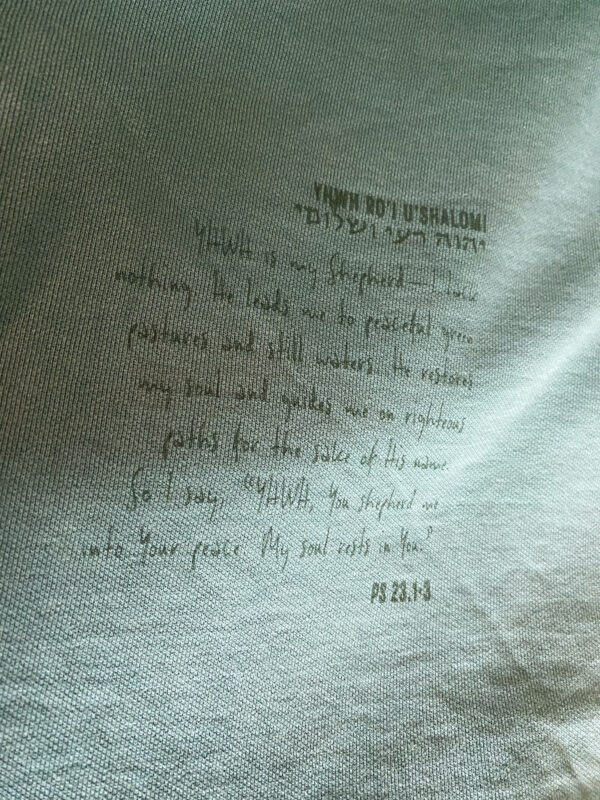 YHWH RO'I U'SHALOMI
יהוה רעי ושלומי
YHWH is my Shepherd—I lack
nothing. He leads me to peaceful green
pastures and still waters. He restores
my soul and guides me on righteous
paths for the sake of His name.
So I say, "YHWH, You shepherd me
into Your peace. My soul rests in You."
PS 23.1-3